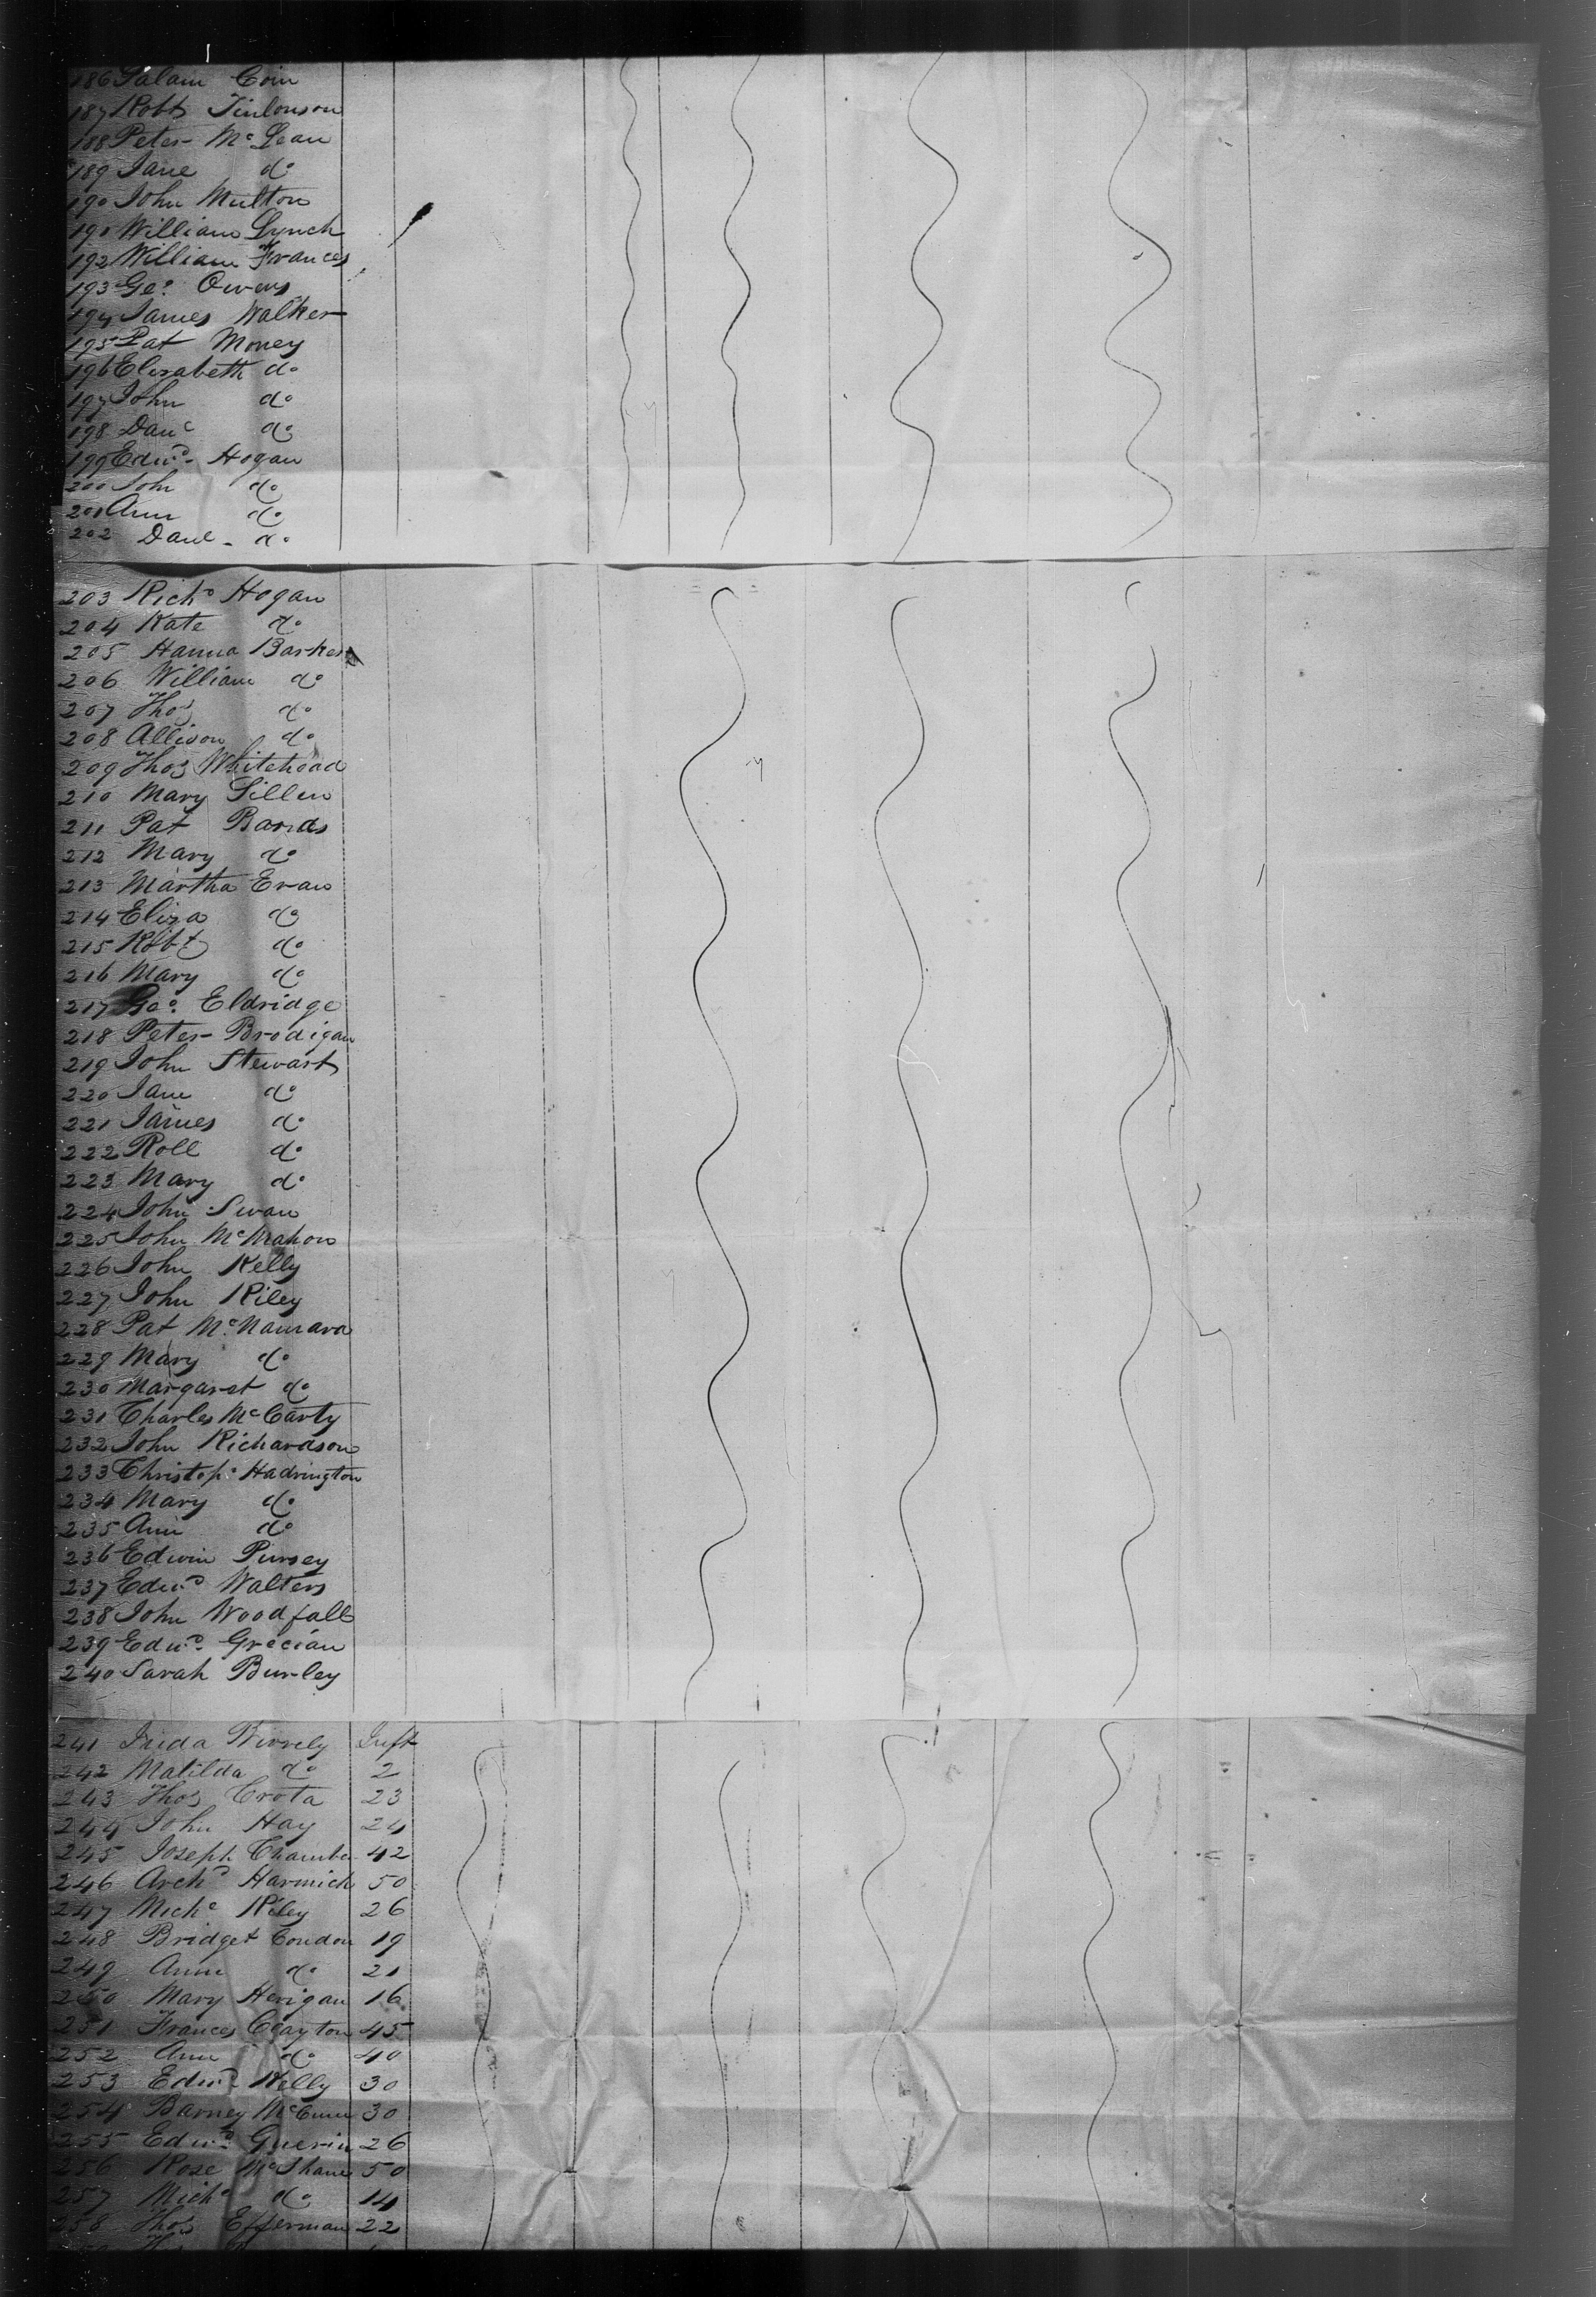 186 Salam Coin
187 Robt Tinlonson
188 Peter McLean
189 Jane do
190 John Multon
190 William Lynch
192 William Frances
193 Geo. Owens
194 James Walker
195 Pat Money
196 Elizabeth do
197 John do
198 Danl do
199 Edwd. Hogan
200 John do
201 Ann do
202 Danl. do
203 Richd Hogan
204 Kate do
205 Hanna Barker
206 William do
207 Thos do
208 Allison do
209 Thos Whitehead
210 Mary Sillen
211 Pat Bands
212 Mary do
213 Martha Evan
214 Eliza do
215 Robt do
216 Mary do
217 Geo. Eldridge
218 Peter Brodigan
219 John Stewart
220 Jane do
221 James do
222 Roll do
223 Mary do
224 John Swan
225 John McMahon
226 John Kelly
227 John Riley
228 Pat McNamara
229 Mary do
230 Margaret do
231 Charles McCarty
232 John Richardson
233 Christop. Hadrington
234 Mary do
235 Ann do
236 Edwin Pursey
237 Edwd Walters
238 John Woodfall
239 Edwd. Grecian
240 Sarah Burley
241 Birrely Inft
242 Matilda do 2
243 Thos Crota 23
244 John Hay 24
245 Joseph Chamber 42
246 Archd Harmich 50
247 Michl Riley 26
248 Bridget Condon 19
249 Ann do 21
250 Mary Herigan 16
251 Frances Clayton 45
252 Ann do 40
253 Edwd Kelly 30
254 Barney McCunn 30
255 Edwd. Guerin 26
256 Rose McShane 50
257 Michl do 14
258 Thos Efferman 22